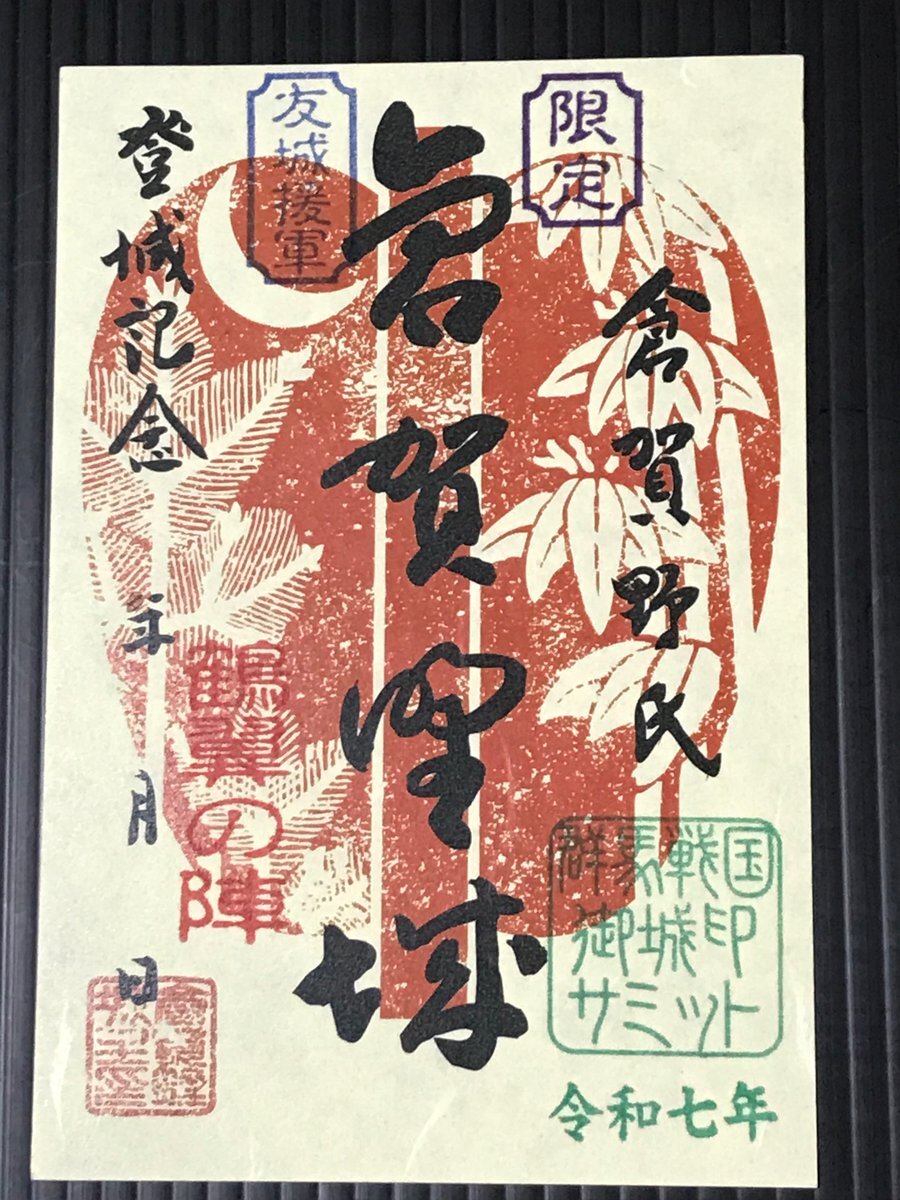 限定
倉賀野氏
群馬戦国
御城印
サミット
令和七年
倉賀野城
友城援軍
鶴翼の陣
登城記念
年 月 日